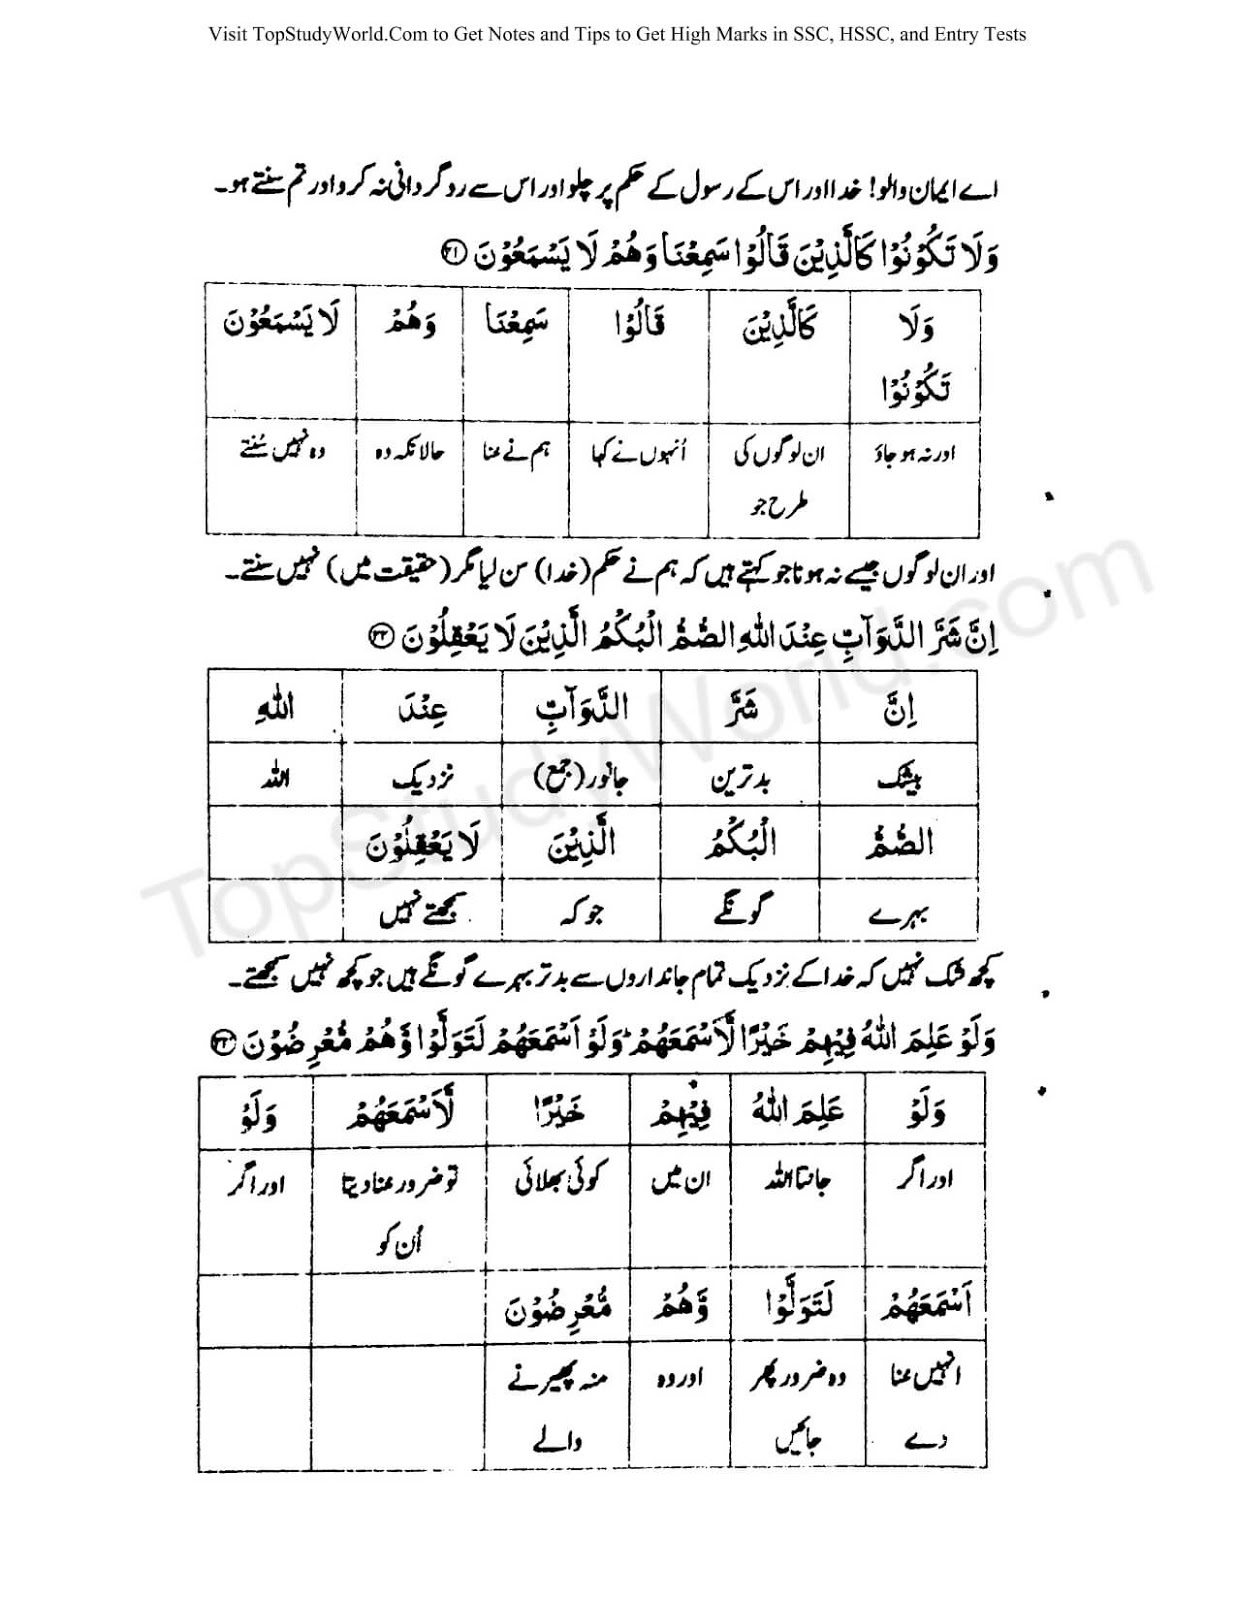 Visit TopStudyWorld.Com to Get Notes and Tips to Get High Marks in SSC, HSSC, and Entry Tests
اے ایمان والو! خدا اور اس کے رسول کے حکم پر چلو اور اس سے روگردانی نہ کرو اور تم سنتے ہو۔
وَلَا تَكُوْنُوْا كَالَّذِيْنَ قَالُوْا سَمِعْنَا وَهُمْ لَا يَسْمَعُوْنَ ﴿۲۱﴾
وَلَا كَالَّذِيْنَ قَالُوْا سَمِعْنَا وَهُمْ لَا يَسْمَعُوْنَ
تَكُوْنُوْا
اور نہ ہو جاؤ ان لوگوں کی اُنہوں نے کہا ہم نے سنا حالانکہ وہ وہ نہیں سُنتے
طرح جو
اور ان لوگوں جیسے نہ ہونا جو کہتے ہیں کہ ہم نے حکم (خدا) سن لیا مگر (حقیقت میں) نہیں سنتے۔
اِنَّ شَرَّ الدَّوَآبِّ عِنْدَ اللهِ الصُّمُّ الْبُكْمُ الَّذِيْنَ لَا يَعْقِلُوْنَ ﴿۲۲﴾
اِنَّ شَرَّ الدَّوَآبِّ عِنْدَ اللهِ
بیشک بدترین جانور (جمع) نزدیک اللہ
الصُّمُّ الْبُكْمُ الَّذِيْنَ لَا يَعْقِلُوْنَ
بہرے گونگے جو کہ سمجھتے نہیں
کچھ شک نہیں کہ خدا کے نزدیک تمام جانداروں سے بدتر بہرے گونگے ہیں جو کچھ نہیں سمجھتے۔
وَلَوْ عَلِمَ اللهُ فِيْهِمْ خَيْرًا لَّاَسْمَعَهُمْ ؕ وَلَوْ اَسْمَعَهُمْ لَتَوَلَّوْا وَّهُمْ مُّعْرِضُوْنَ ﴿۲۳﴾
وَلَوْ عَلِمَ اللهُ فِيْهِمْ خَيْرًا لَّاَسْمَعَهُمْ وَلَوْ
اور اگر جانتا اللہ ان میں کوئی بھلائی تو ضرور سنا دیتا اور اگر
اُن کو
اَسْمَعَهُمْ لَتَوَلَّوْا وَّهُمْ مُّعْرِضُوْنَ
انہیں سنا وہ ضرور پھر اور وہ منہ پھیرنے
دے جائیں والے
TopStudyWorld.com